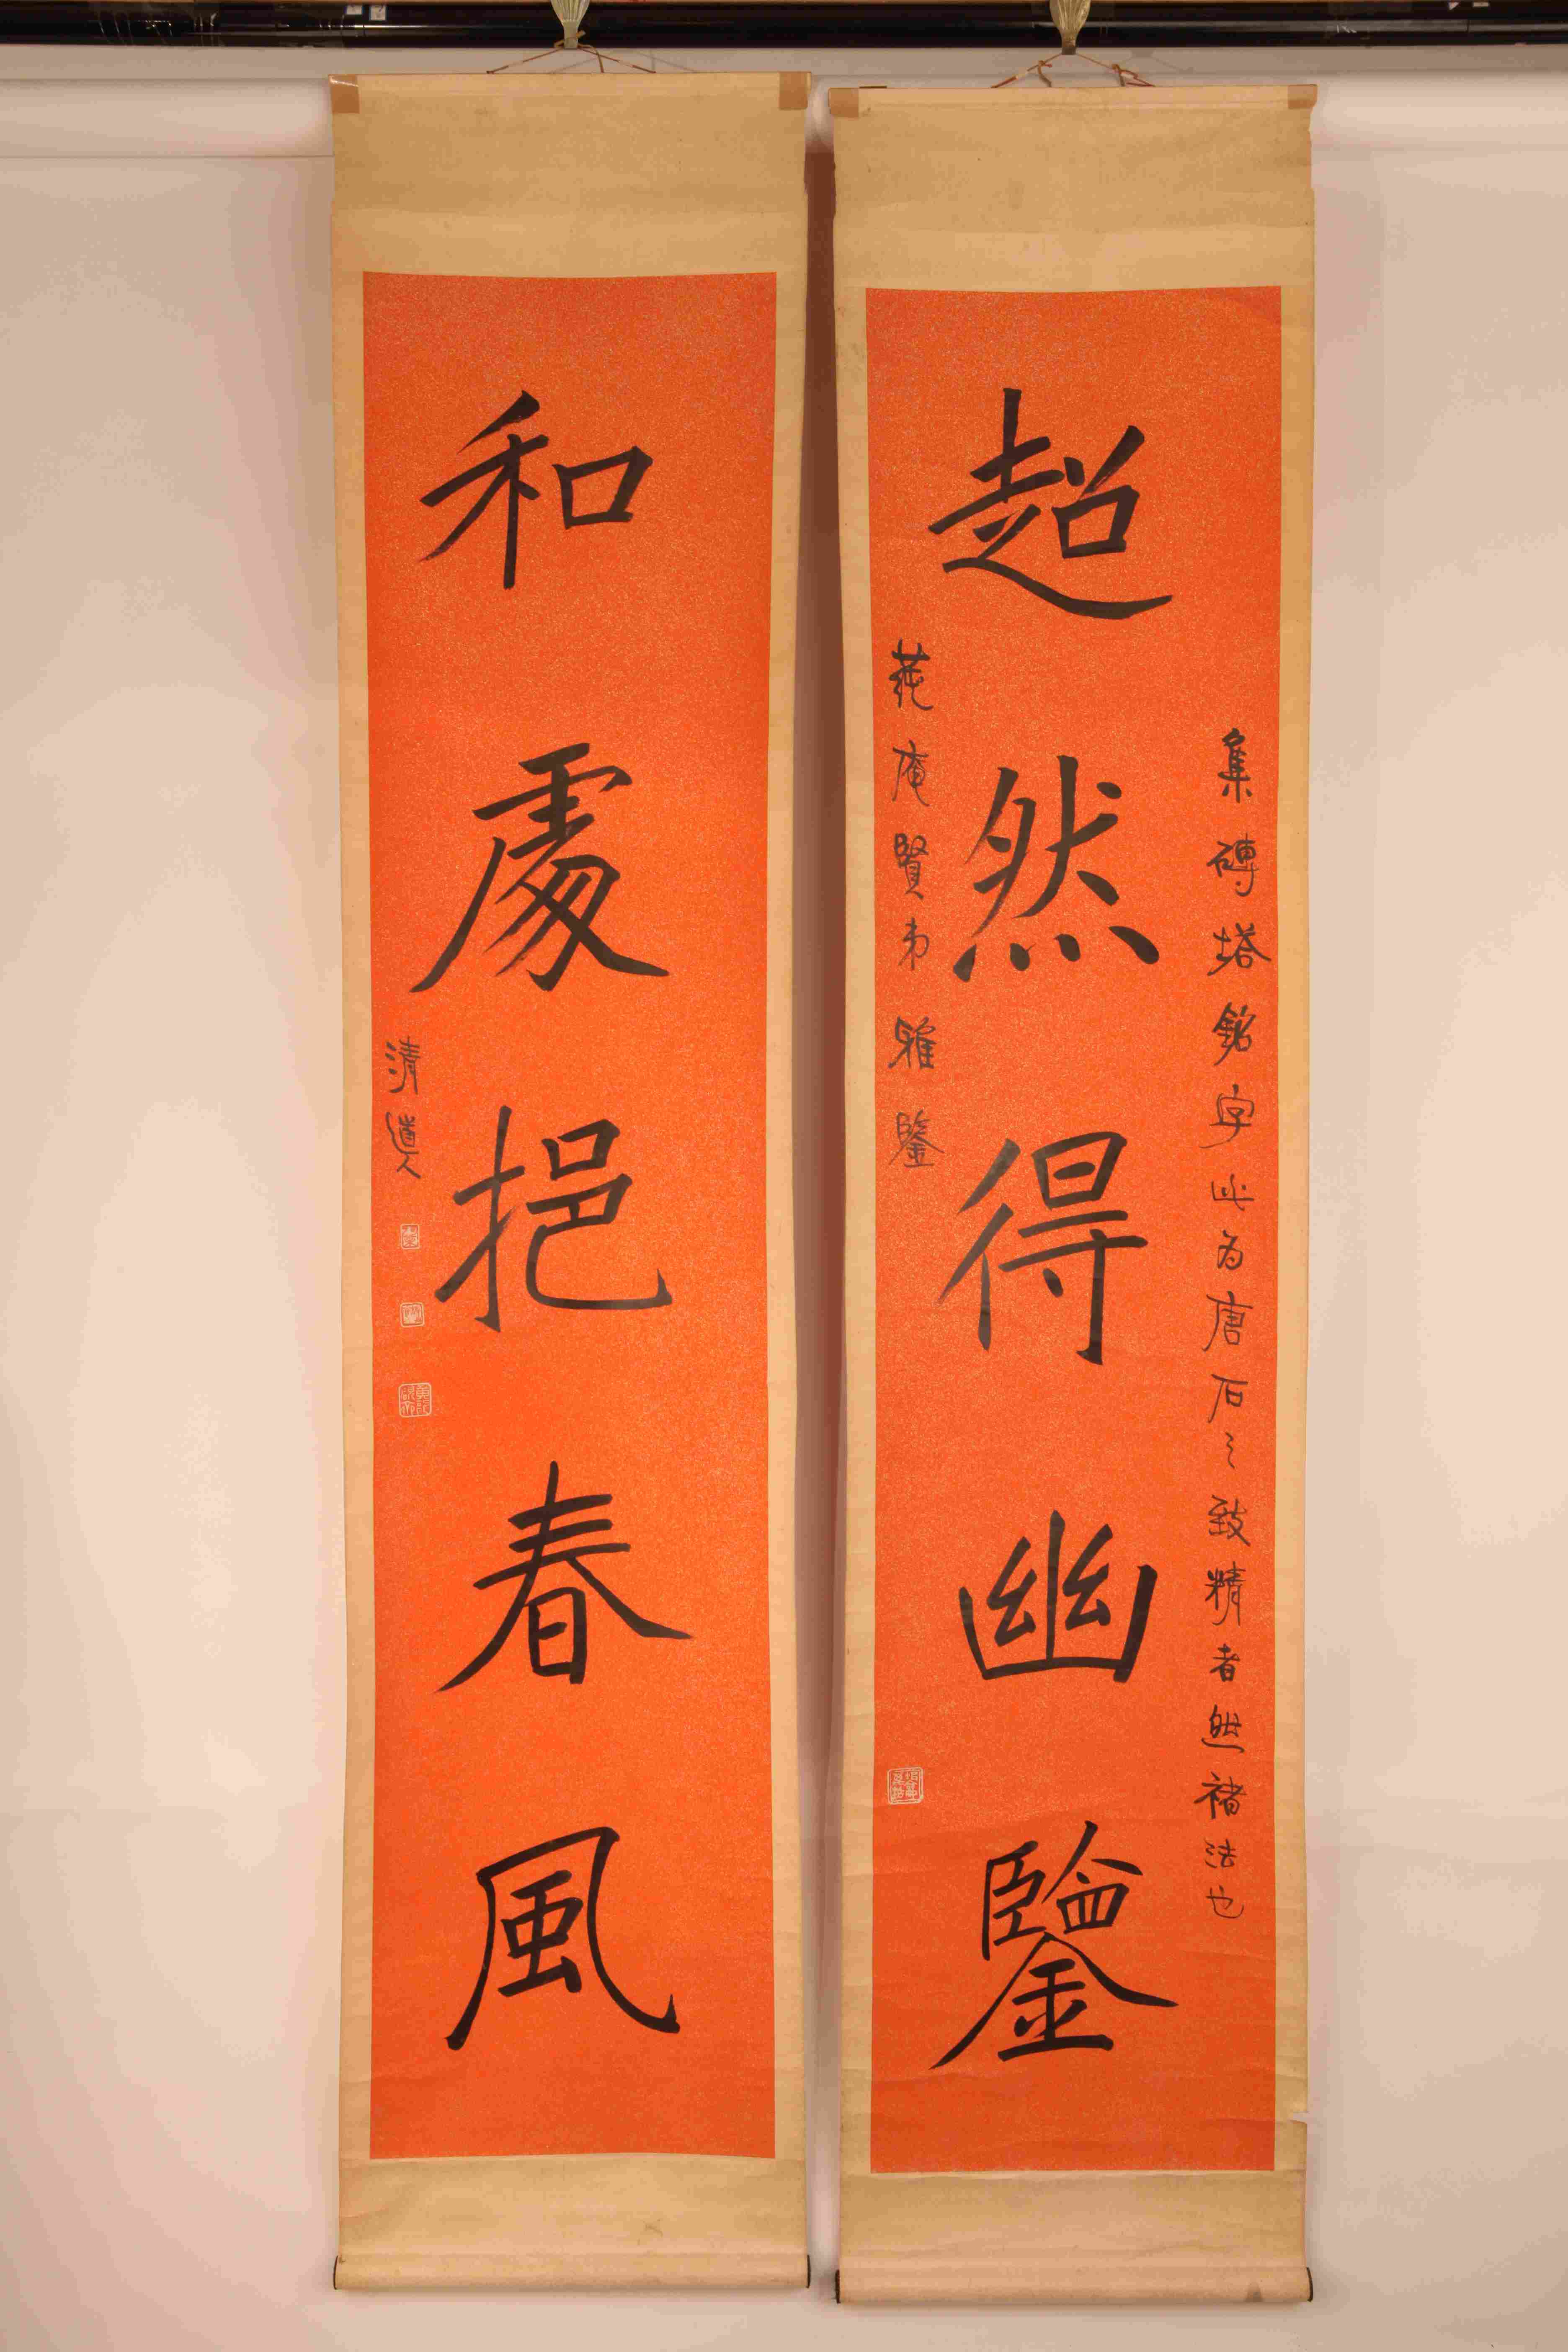 超然得幽鑒
集磚塔銘字此為唐石之致精者然褚法也
庵賢弟雅鑒
和處挹春風
清道人